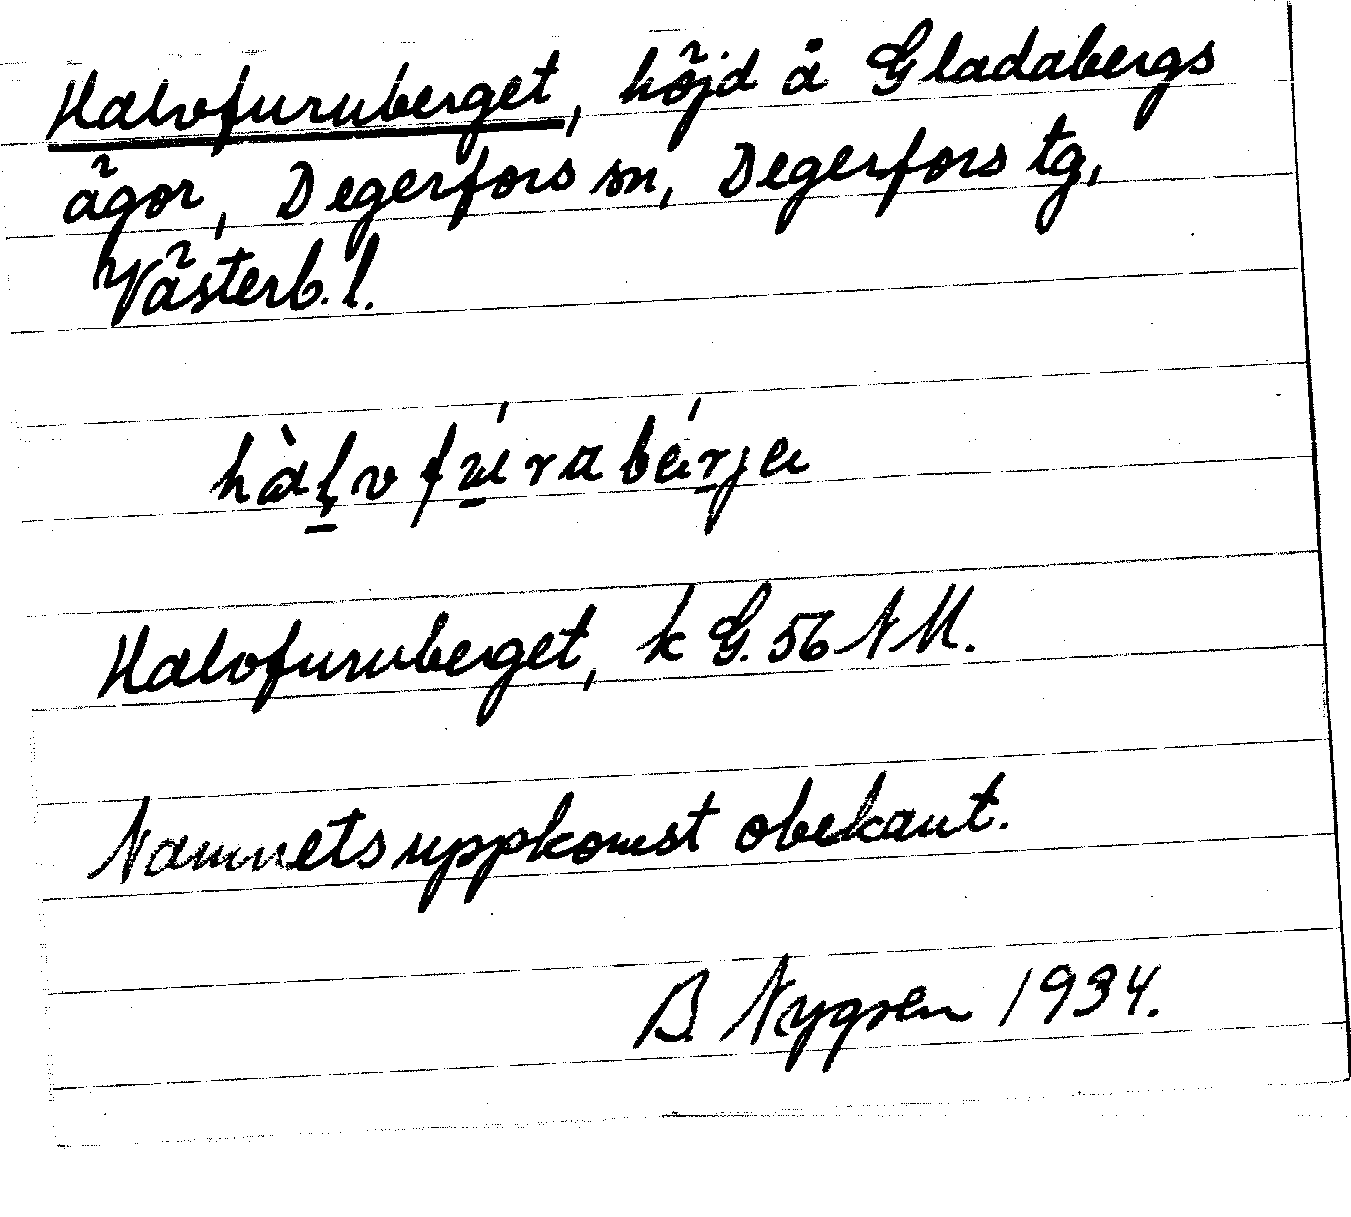 Halvfuruberget, höjd å Gladabergs
ägor, Degerfors sn, Degerfors tg,
Västerb. l.
hàḷvfúrabérje
Halvfuruberget, k G. 56 NM.
Namnets uppkomst obekant.
B Nygren 1934.